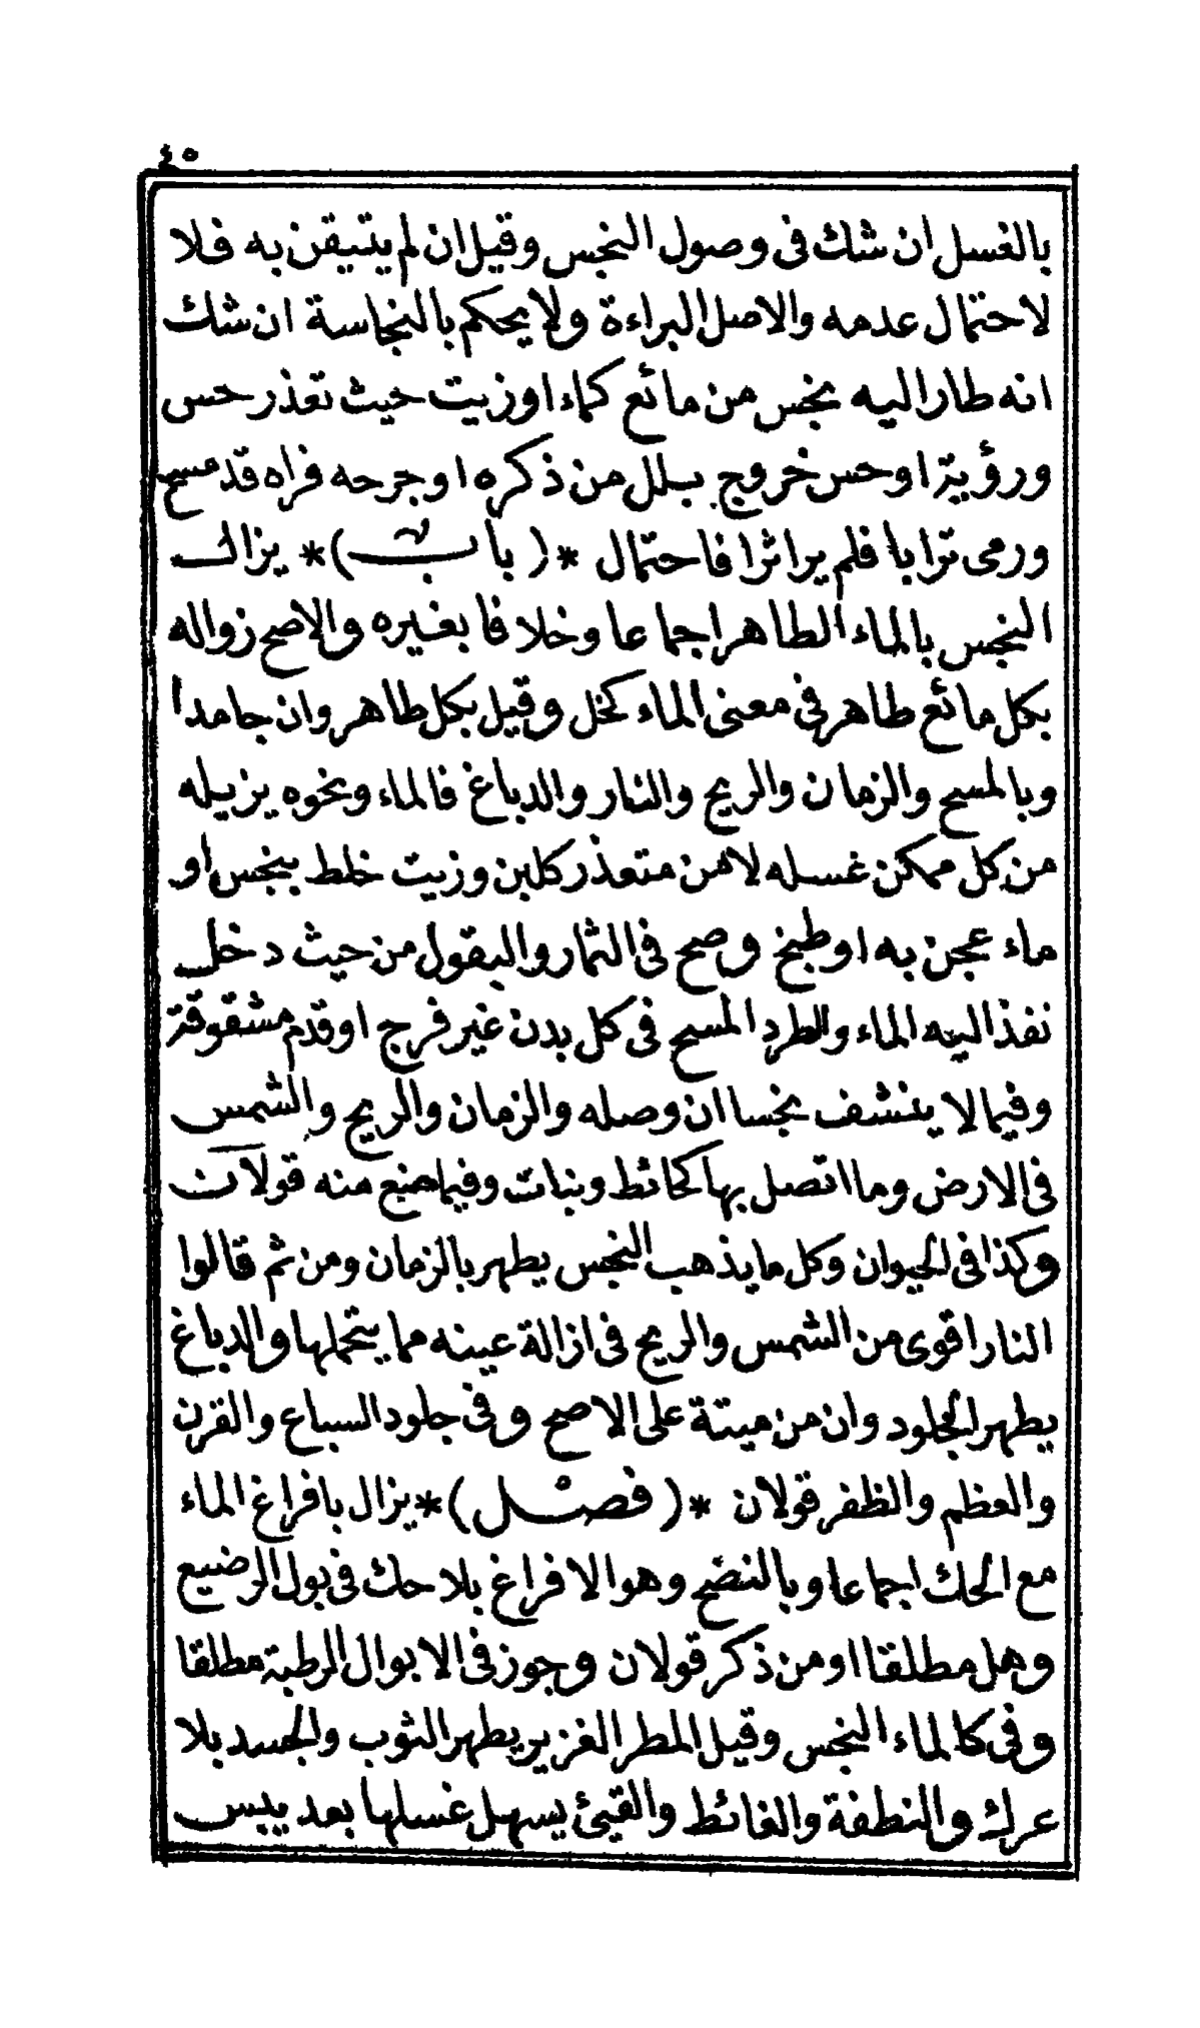 ٤٥
بالغسل ان شك فى وصول النجس وقيل ان لم يتيقن به فلا
لاحتمال عدمه والاصل البراءة ولا يحكم بالنجاسة ان شك
انه طار اليه نجس من مائع كماء او زيت حيث تعذر حس
ورؤية او حس خروج بلل من ذكره او جرحه فراه قد مسح
ورمى ترابا فلم ير اثرا فاحتمال *( باب )* يزال
النجس بالماء الطاهر اجماعا وخلافا بغيره والاصح زواله
بكل مائع طاهر فى معنى الماء كخل وقيل بكل طاهر وان جامدا
وبالمسح والزمان والريح والنار والدباغ فالماء ونحوه يزيله
من كل ممكن غسله لا من متعذر كلبن وزيت خلط بنجس او
ماء عجن به او طبخ وصح فى الثمار والبقول من حيث دخل
نفذ اليه الماء والطرد المسح فى كل بدن غير فرج او قدم مشقوقة
وفيما لا ينشف نجسا ان وصله والزمان والريح والشمس
فى الارض وما اتصل بها كحائط ونبات وفيما صنع منه قولان
وكذا فى الحيوان وكل ما يذهب النجس يطهر بالزمان ومن ثم قالوا
النار اقوى من الشمس والريح فى ازالة عينه مما يتحملها والدباغ
يطهر الجلود وان من ميتة على الاصح وفى جلود السباع والقرن
والعظم والظفر قولان *( فصل )* يزال بافراغ الماء
مع الحك اجماعا وبالنضح وهو الافراغ بلا حك فى بول الرضيع
وهل مطلقا او من ذكر قولان وجوز فى الابوال الرطبة مطلقا
وفى كالماء النجس وقيل المطر الغزير يطهر الثوب والجسد بلا
عرك والنطفة والغائط والقيئ يسهل غسلها بعد يبس